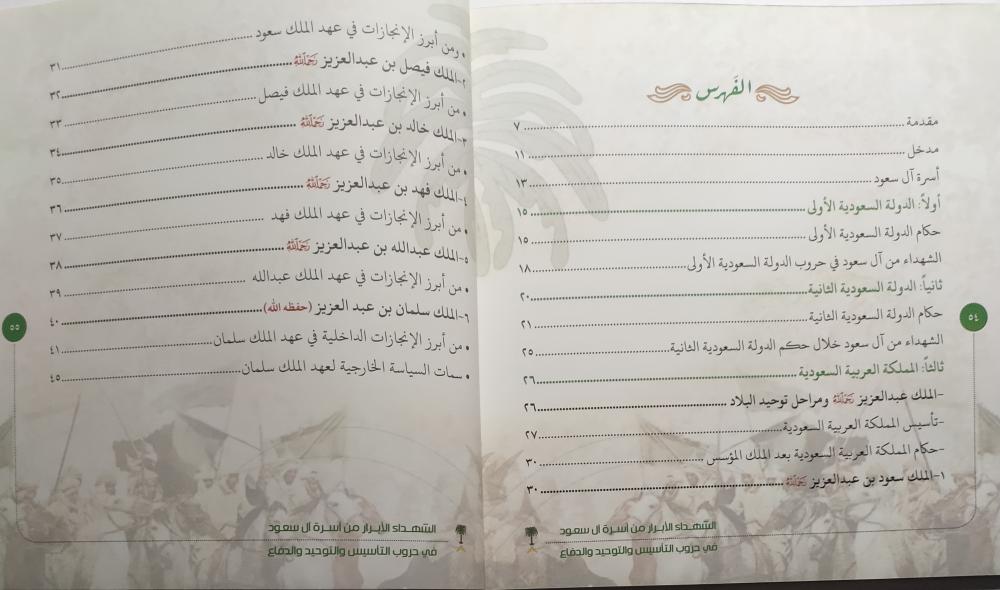 الفَهرس
مقدمة ........ ٧
مدخل ........ ١١
أسرة آل سعود ........ ١٣
أولاً: الدولة السعودية الأولى ........ ١٥
حكام الدولة السعودية الأولى ........ ١٥
الشهداء من آل سعود في حروب الدولة السعودية الأولى ........ ١٨
ثانياً: الدولة السعودية الثانية ........ ٢٠
حكام الدولة السعودية الثانية ........ ٢١
الشهداء من آل سعود خلال حكم الدولة السعودية الثانية ........ ٢٥
ثالثاً: المملكة العربية السعودية ........ ٢٦
-الملك عبدالعزيز رَحِمَهُ اللَّهُ ومراحل توحيد البلاد ........ ٢٦
-تأسيس المملكة العربية السعودية ........ ٢٧
-حكام المملكة العربية السعودية بعد الملك المؤسس ........ ٣٠
١-الملك سعود بن عبدالعزيز رَحِمَهُ اللَّهُ ........ ٣٠
٥٤
الشهداء الأبرار من أسرة آل سعود
في حروب التأسيس والتوحيد والدفاع
• ومن أبرز الإنجازات في عهد الملك سعود ........ ٣١
٢-الملك فيصل بن عبدالعزيز رَحِمَهُ اللَّهُ ........ ٣٢
• من أبرز الإنجازات في عهد الملك فيصل ........ ٣٣
٣-الملك خالد بن عبدالعزيز رَحِمَهُ اللَّهُ ........ ٣٤
• من أبرز الإنجازات في عهد الملك خالد ........ ٣٥
٤-الملك فهد بن عبدالعزيز رَحِمَهُ اللَّهُ ........ ٣٦
• من أبرز الإنجازات في عهد الملك فهد ........ ٣٧
٥-الملك عبدالله بن عبدالعزيز رَحِمَهُ اللَّهُ ........ ٣٨
• من أبرز الإنجازات في عهد الملك عبدالله ........ ٣٩
٦-الملك سلمان بن عبد العزيز (حفظه الله) ........ ٤٠
• من أبرز الإنجازات الداخلية في عهد الملك سلمان ........ ٤١
• سمات السياسة الخارجية لعهد الملك سلمان ........ ٤٥
٥٥
الشهداء الأبرار من أسرة آل سعود
في حروب التأسيس والتوحيد والدفاع